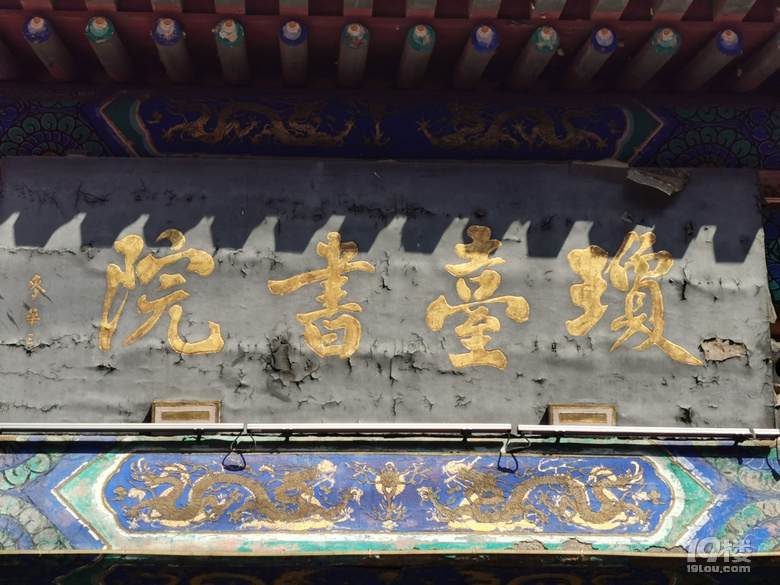 瓊臺書院
19楼
19lou.com